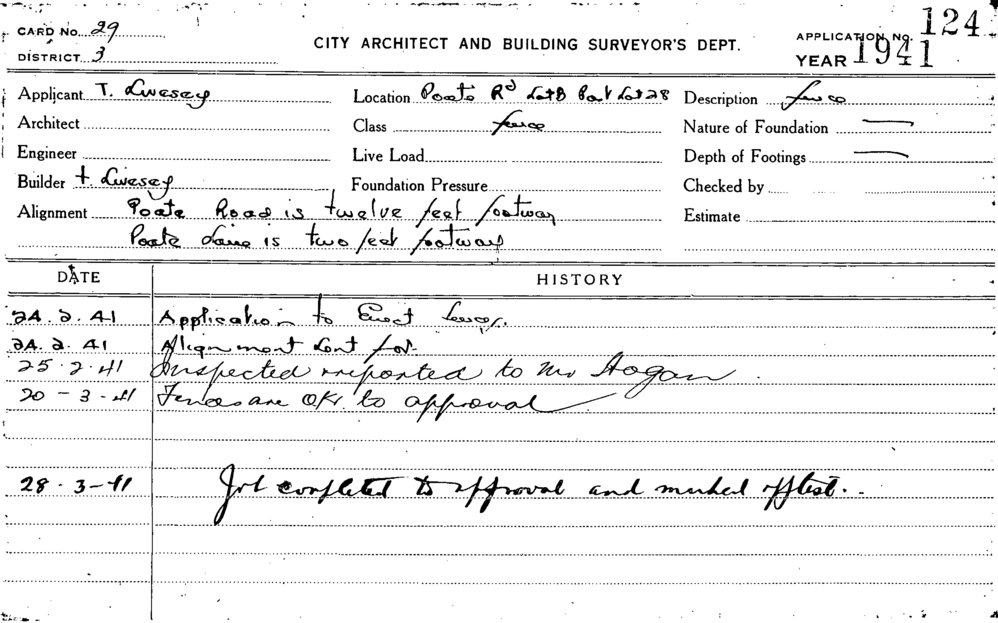 CARD No. 29
DISTRICT 3
CITY ARCHITECT AND BUILDING SURVEYOR'S DEPT.
APPLICATION NO. 124
YEAR 1941
Applicant T. Livesey
Location Poate Rd Lot B Part Lot 28
Description fence
Architect
Class fence
Nature of Foundation —
Engineer
Live Load
Depth of Footings —
Builder T. Livesey
Foundation Pressure
Checked by
Alignment Poate Road is twelve feet footway
Estimate
Poate Lane is two feet footway
DATE HISTORY
24.2.41 Application to Erect fence.
24.2.41 Alignment sent for.
25.2.41 Inspected & reported to Mr Hogan.
20-3-41 Fences are OK. to approval
28.3-41 Job completed to approval and marked off list.